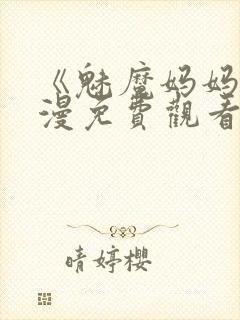 《魅魔妈妈
漫免費觀看
晴婷櫻